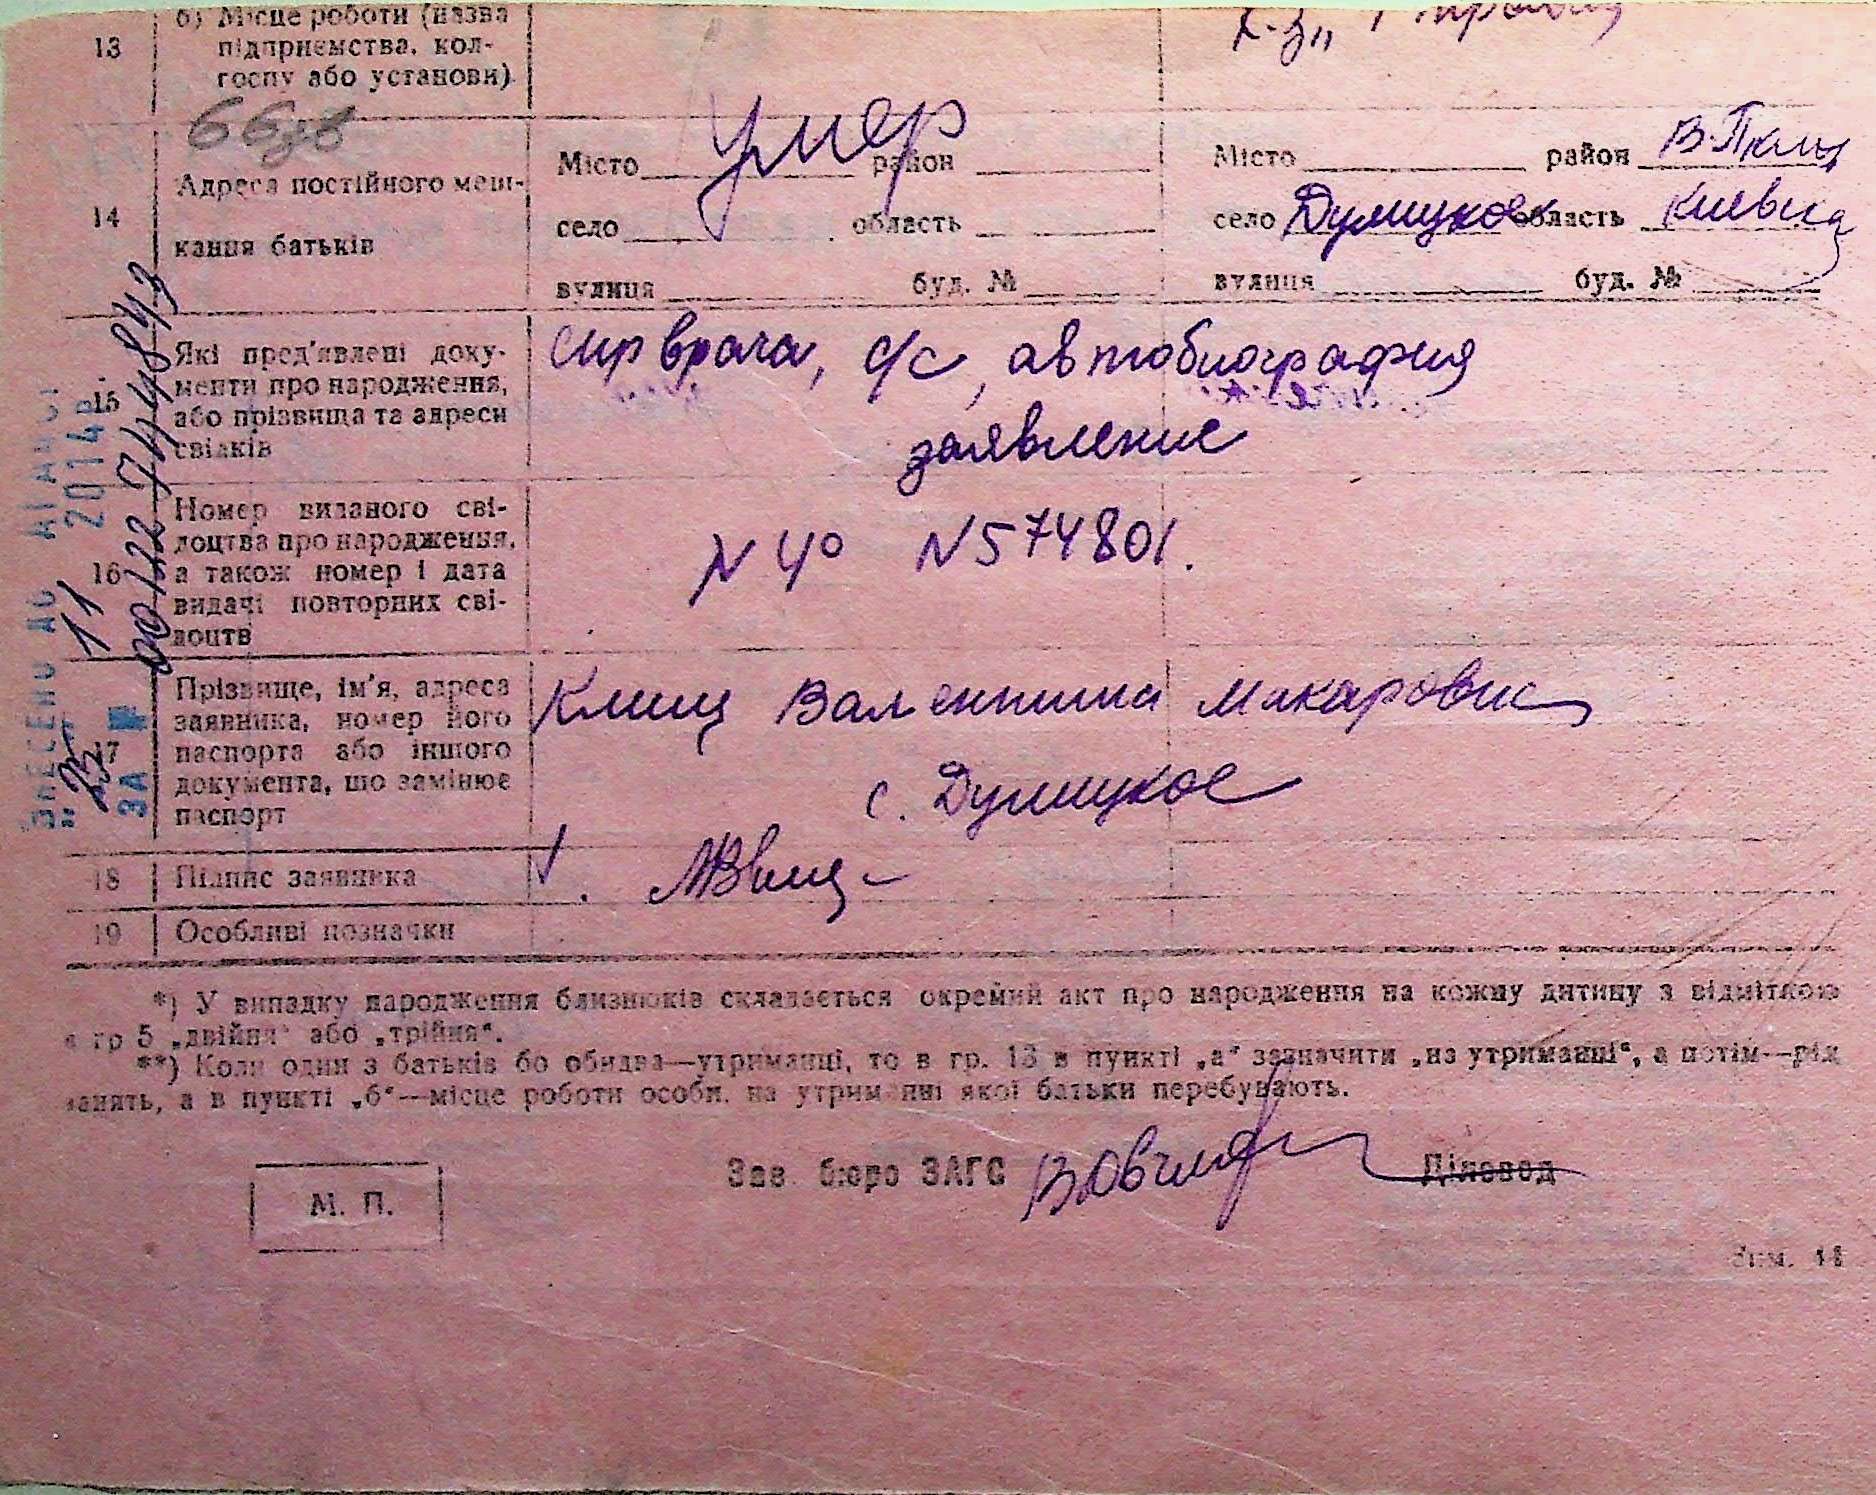 13 б) Місце роботи (назва підприємства, колгоспу або установи)
14 Адреса постійного мешкання батьків
умер
Місто район
село область
вулиця буд. №
Місто район
село Думицкое область Киевска
вулиця буд. №
15 Які пред'явлені документи про народження, або прізвища та адреси свідків
спр врача, с/с, автобиография
заявление
16 Номер виданого свідоцтва про народження, а також номер і дата видачі повторних свідоцтв
N 40 N574801.
17 Прізвище, ім'я, адреса заявника, номер його паспорта або іншого документа, що замінює паспорт
Клищ Валентина Макаровна
с. Думицкое
18 Підпис заявника
19 Особливі позначки
*) У випадку народження близнюків складається окремий акт про народження на кожну дитину з відміткою
в гр 5 „двійня“ або „трійня“.
**) Коли один з батьків бо обидва—утриманці, то в гр. 13 в пункті „а“ зазначити „на утриманні“, а потім—рід
занять, а в пункті „б“—місце роботи особи, на утриманні якої батьки перебувають.
М. П.
Зав. бюро ЗАГС Діловод
ВНЕСЕНО ДО
11 2014
"25"
ЗА №
00122 5748843